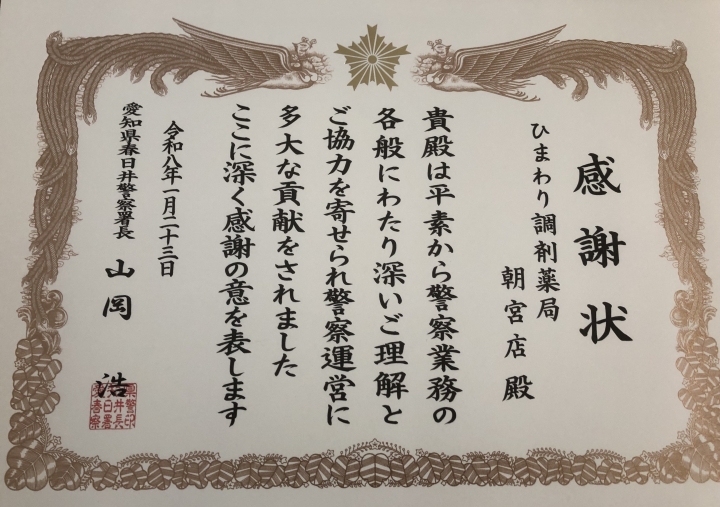 感謝状
ひまわり調剤薬局
朝宮店 殿
貴殿は平素から警察業務の
各般にわたり深いご理解と
ご協力を寄せられ警察運営に
多大な貢献をされました
ここに深く感謝の意を表します
令和八年一月二十三日
愛知県春日井警察署長 山岡 浩